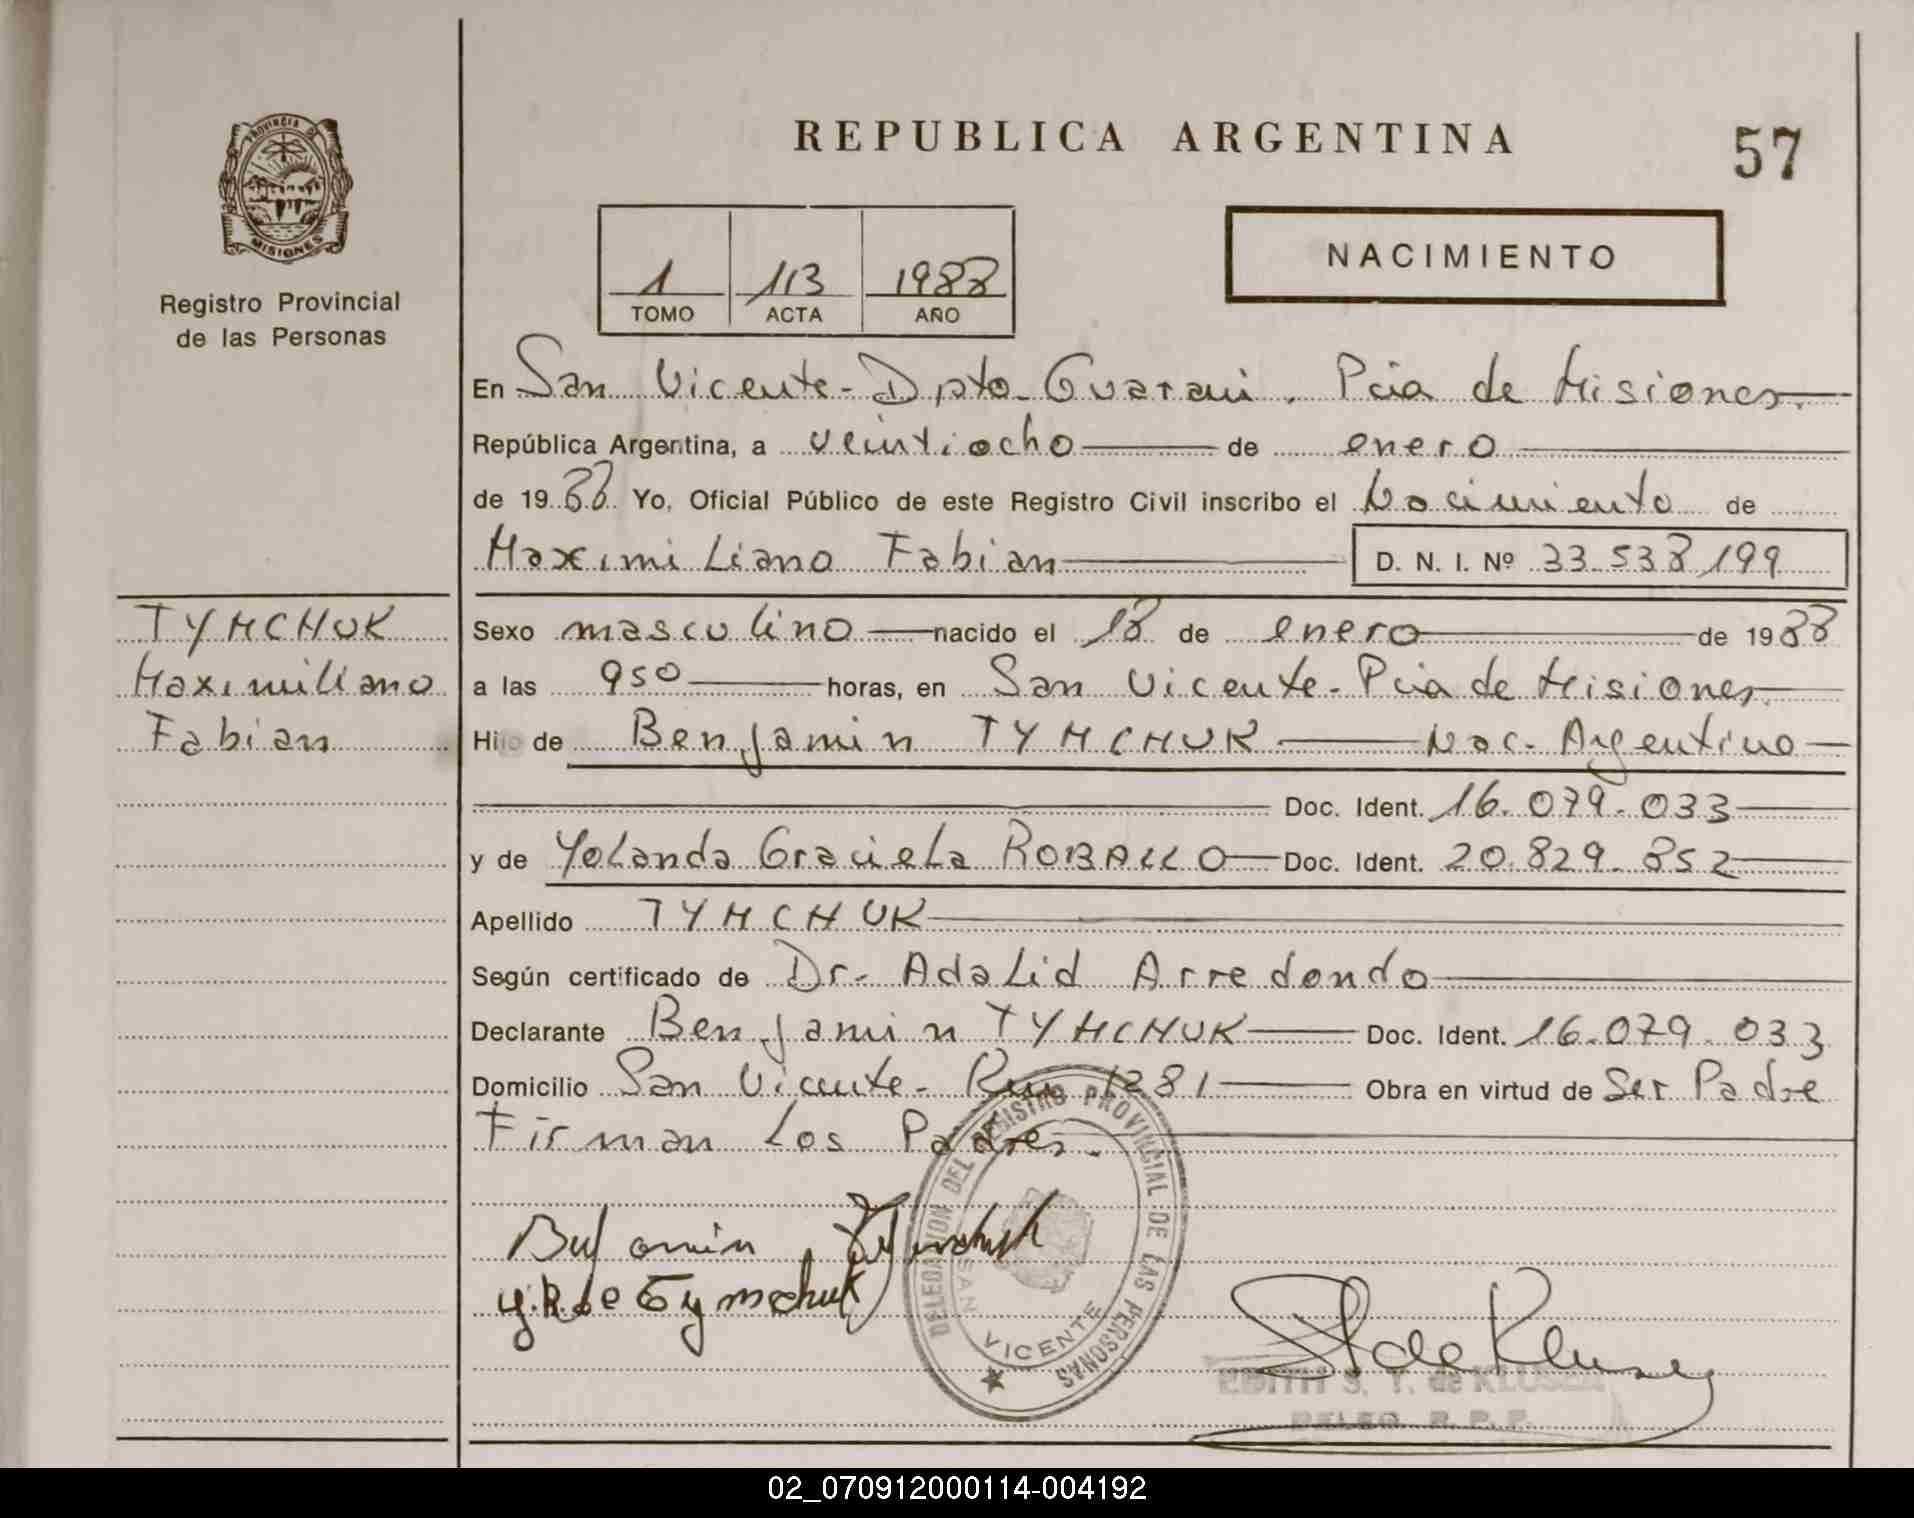 PROVINCIA DE
MISIONES
Registro Provincial
de las Personas
REPUBLICA ARGENTINA
57
1 113 1988
TOMO ACTA AÑO
NACIMIENTO
En San Vicente - Dpto. Guarani. Pcia de Misiones.
República Argentina, a veintiocho de enero
de 1988 Yo, Oficial Público de este Registro Civil inscribo el Nacimiento de
Maximiliano Fabian D. N. I. Nº 33.538.199
TYMCHUK
Maximiliano
Fabian
Sexo masculino nacido el 18 de enero de 1988
a las 950 horas, en San Vicente - Pcia de Misiones
Hijo de Benjamin TYMCHUK Nac. Argentino
Doc. Ident. 16.079.033
y de Yolanda Graciela ROBALLO Doc. Ident. 20.829.852
Apellido TYMCHUK
Según certificado de Dr. Adalid Arredondo
Declarante Benjamin TYMCHUK Doc. Ident. 16.079.033
Domicilio San Vicente - Ruv 1281 Obra en virtud de Ser Padre
Firman Los Padres.
DELEGACION DEL REGISTRO PROVINCIAL DE LAS PERSONAS
SAN VICENTE
Benjamin Tymchuk
Y.R de Tymschuk
EDITH S. T. de KLUSEN
DELEG. R. P. P.
02_070912000114-004192